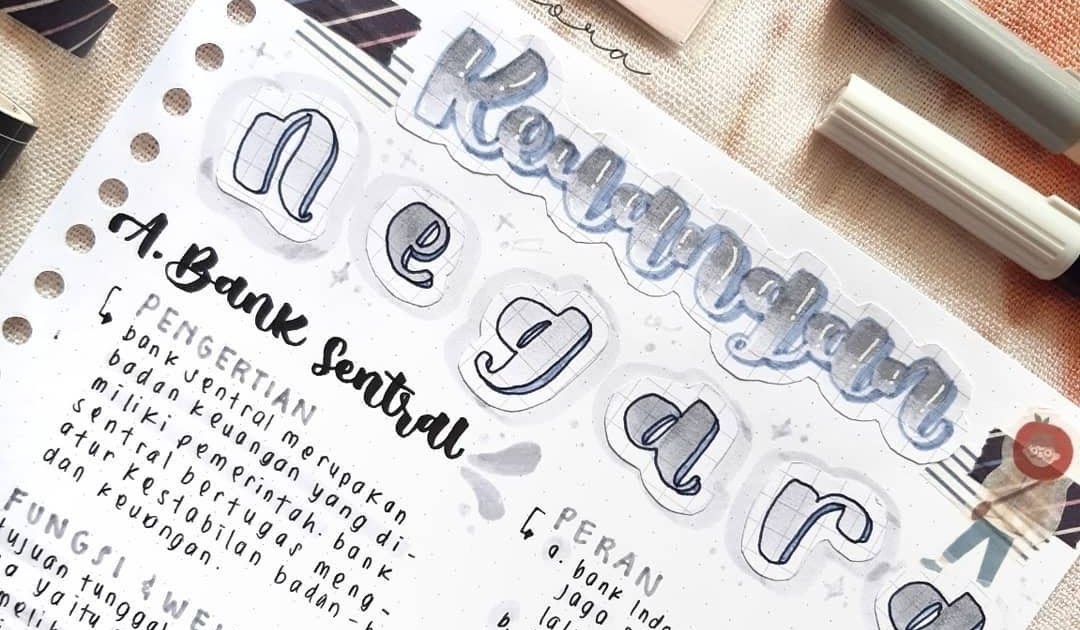 Keuangan
negara
A. Bank Sentral
PENGERTIAN
bank sentral merupakan
badan keuangan yang di-
miliki pemerintah. bank
sentral bertugas meng-
atur kestabilan badan-b
dan keuangan.
FUNGSI & WE
tujuan tunggal
a yaitu
PERAN
a. bank Indo
jaga
b.